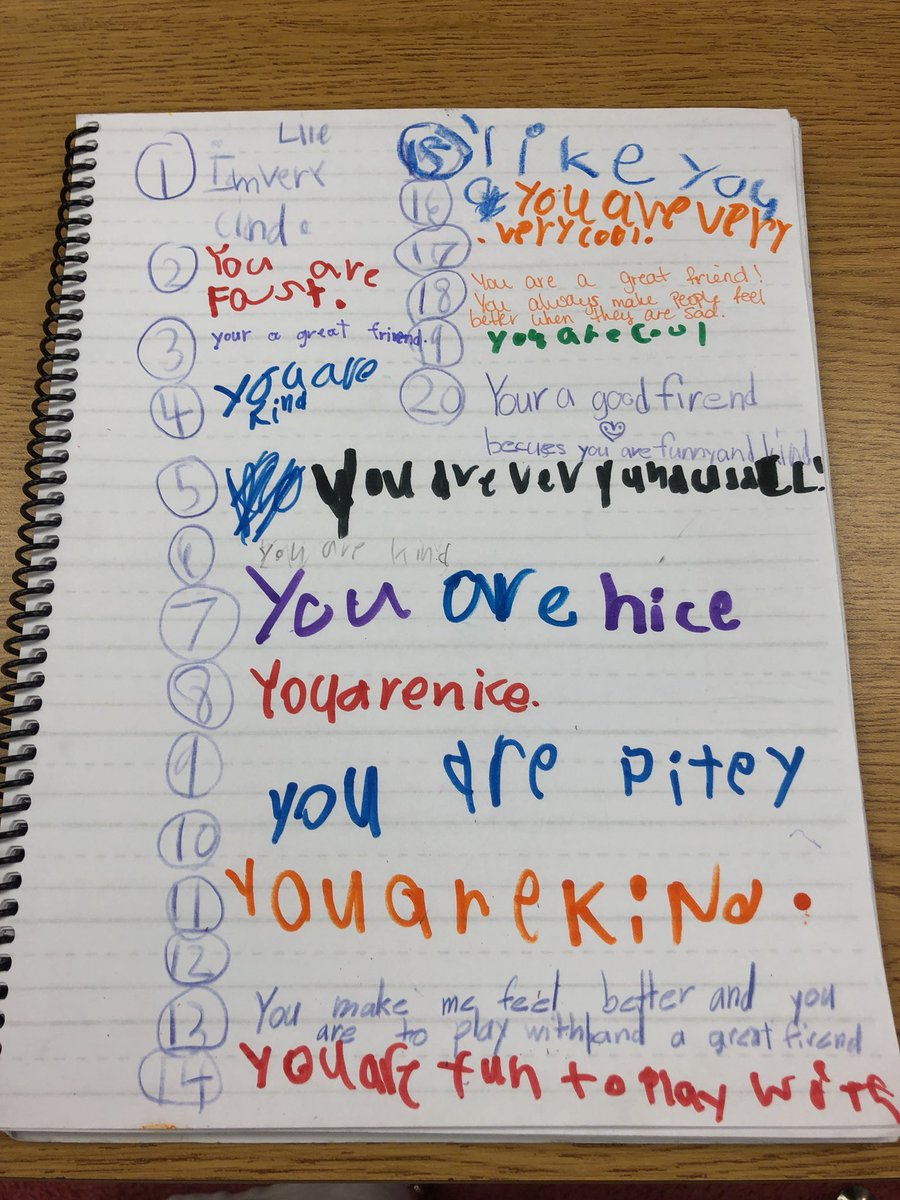 1
Im very
cind.
2
You are
Fast.
3
your a great friend.
4
you are
kind
5
You are very
6
You are kind
7
You are nice
8
You are nice.
9
you are pitey
10
11
You are KiNd.
12
13
You make me feel better and you
are to play with and a great firend
14
You are fun to play with
15
i like you
16
You are very
17
very cool.
18
You are a great friend!
You always make people feel
better when they are sad.
19
you are cool
20
Your a good firend
becuses you are funny and kind